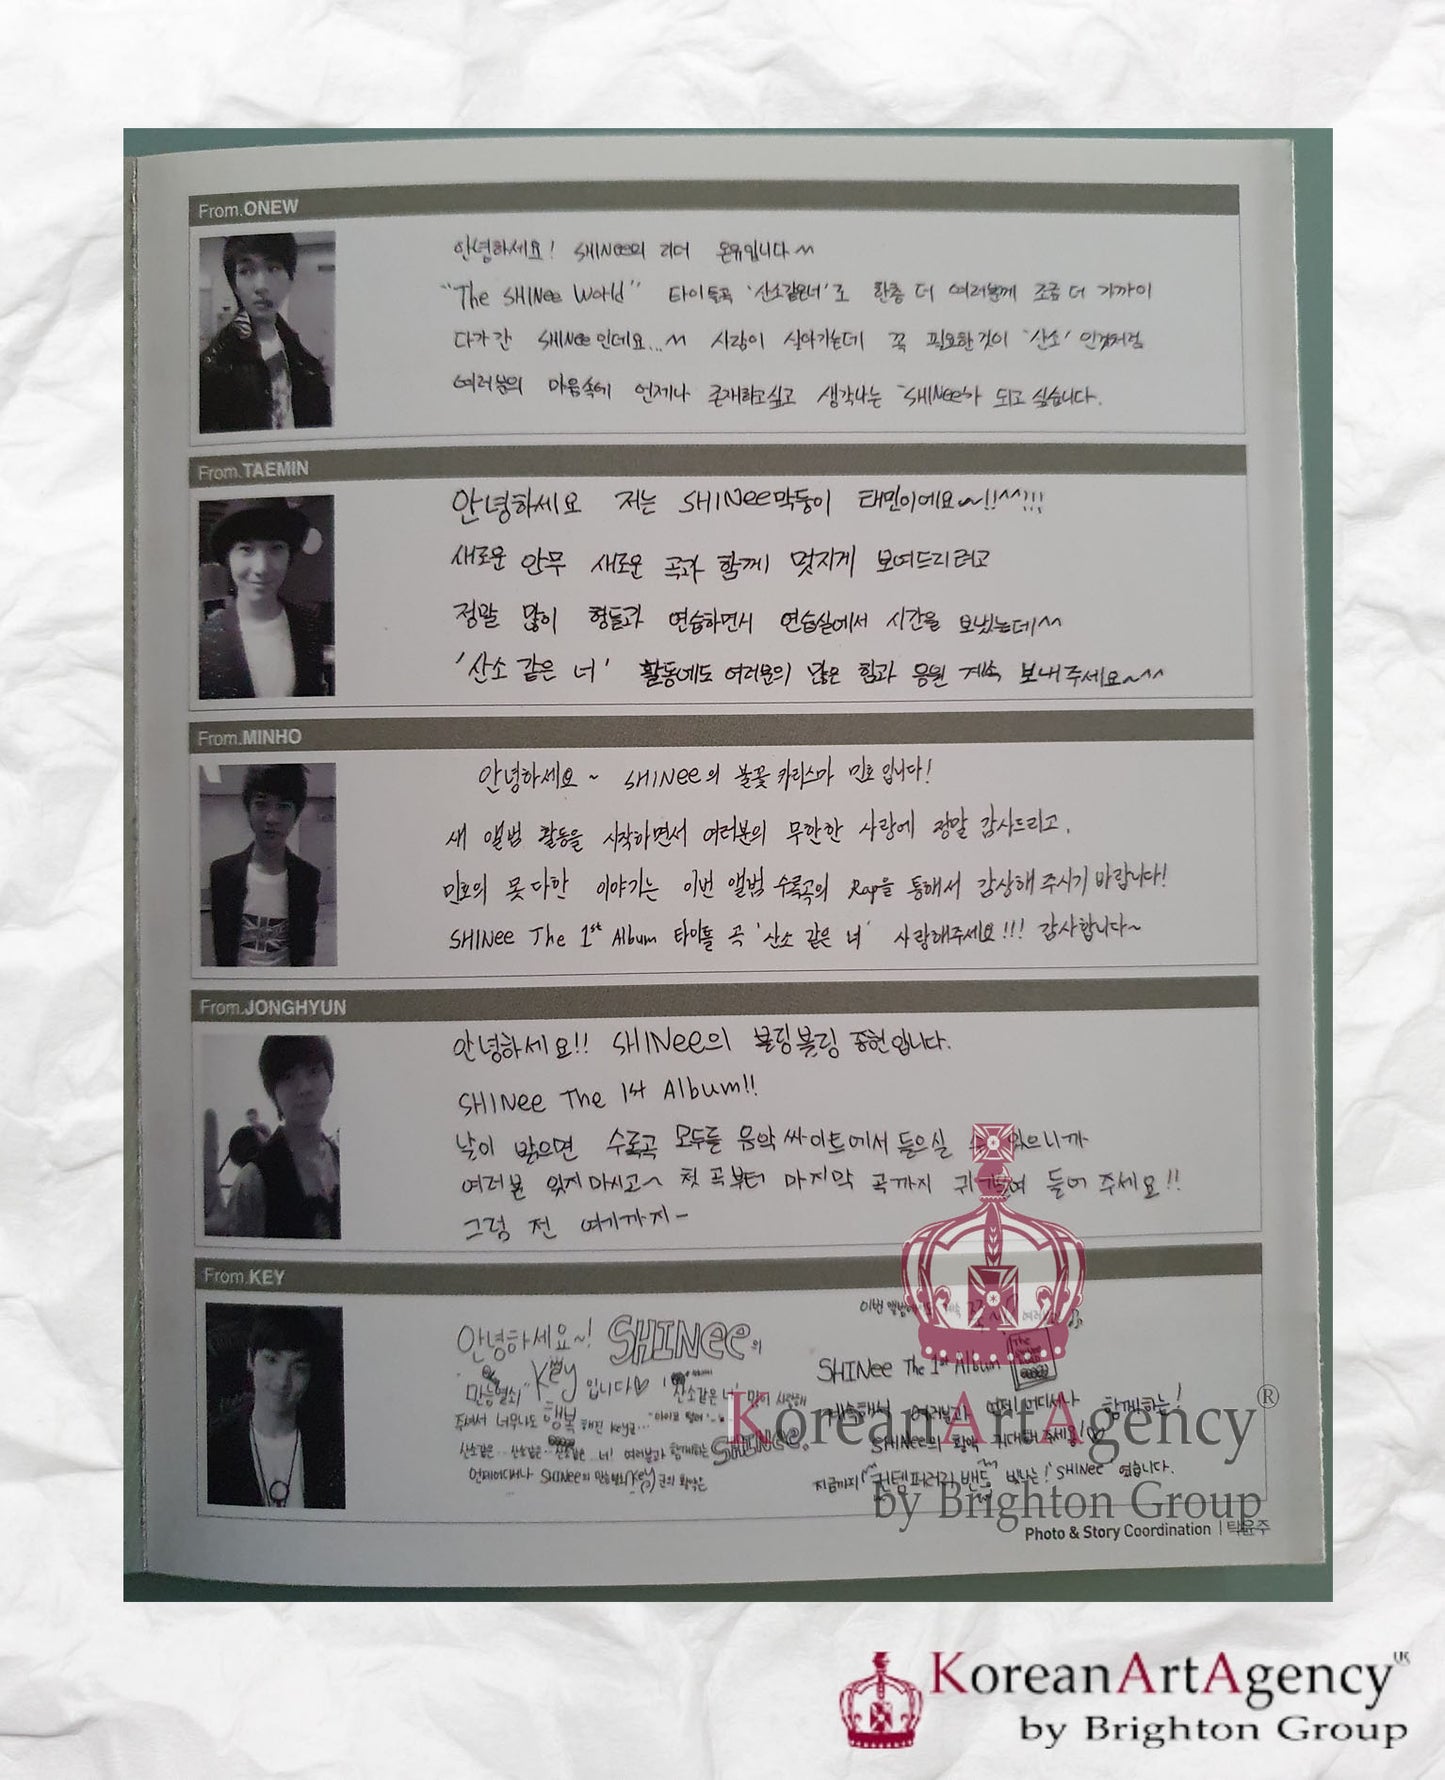 From.ONEW
안녕하세요! SHINee의 리더 온유입니다^^
"The SHINee World" 타이틀곡 '산소같은너'로 한층 더 여러분께 조금 더 가까이
다가간 SHINee인데요...^^ 사람이 살아가는데 꼭 필요한것이 '산소'인것처럼
여러분의 마음속에 언제나 존재하고싶고 생각나는 SHINee가 되고 싶습니다.
From.TAEMIN
안녕하세요 저는 SHINee막둥이 태민이에요~!!^^!!!
새로운 안무 새로운 곡과 함께 멋지게 보여드리려고
정말 많이 형들과 연습하면서 연습실에서 시간을 보냈는데^^
'산소 같은 너' 활동에도 여러분의 많은 힘과 응원 계속 보내주세요~^^
From.MINHO
안녕하세요~ SHINee의 불꽃 카리스마 민호입니다!
새 앨범 활동을 시작하면서 여러분의 무한한 사랑에 정말 감사드리고,
민호의 못다한 이야기는 이번 앨범 수록곡의 Rap을 통해서 감상해 주시기 바랍니다!
SHINee The 1st Album 타이틀 곡 '산소 같은 너' 사랑해주세요!!! 감사합니다~
From.JONGHYUN
안녕하세요!! SHINee의 블링블링 종현입니다.
SHINee The 1st Album!!
날이 밝으면 수록곡 모두를 음악싸이트에서 들으실 있으니까
여러분 잊지마시고~ 첫 곡부터 마지막 곡까지 귀 들어 주세요!!
그럼 전 여기까지-
From.KEY
안녕하세요~! SHINee의
"만능열쇠" Key입니다♡ 산소같은 너' 많이 사랑해
주셔서 너무나도 행복해진 key군...
산소같은... 산소같은... 산소같은... 너! 여러분과 함께하는 SHINee.
언제어디서나 SHINee의 만능열쇠(Key)군의 활약은
이번 앨범에도
SHINee The 1st Album
계속해서 여러분과 언제! 어디서나 함께하는!
SHINee의 활약 기대해주세요!♡
지금까지! "컨템퍼러리 밴드" 빛나는! SHINee 였습니다.
Photo & Story Coordination | 탁윤주
KoreanArtAgency®
by Brighton Group
KoreanArtAgency UK
by Brighton Group